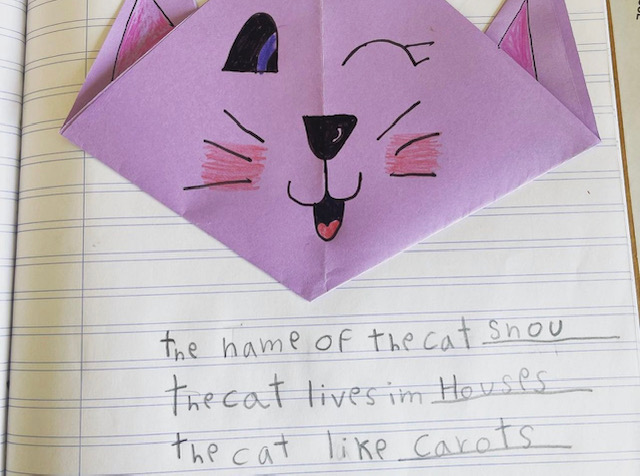 the name of the cat snou
the cat lives im Houses
the cat like carots